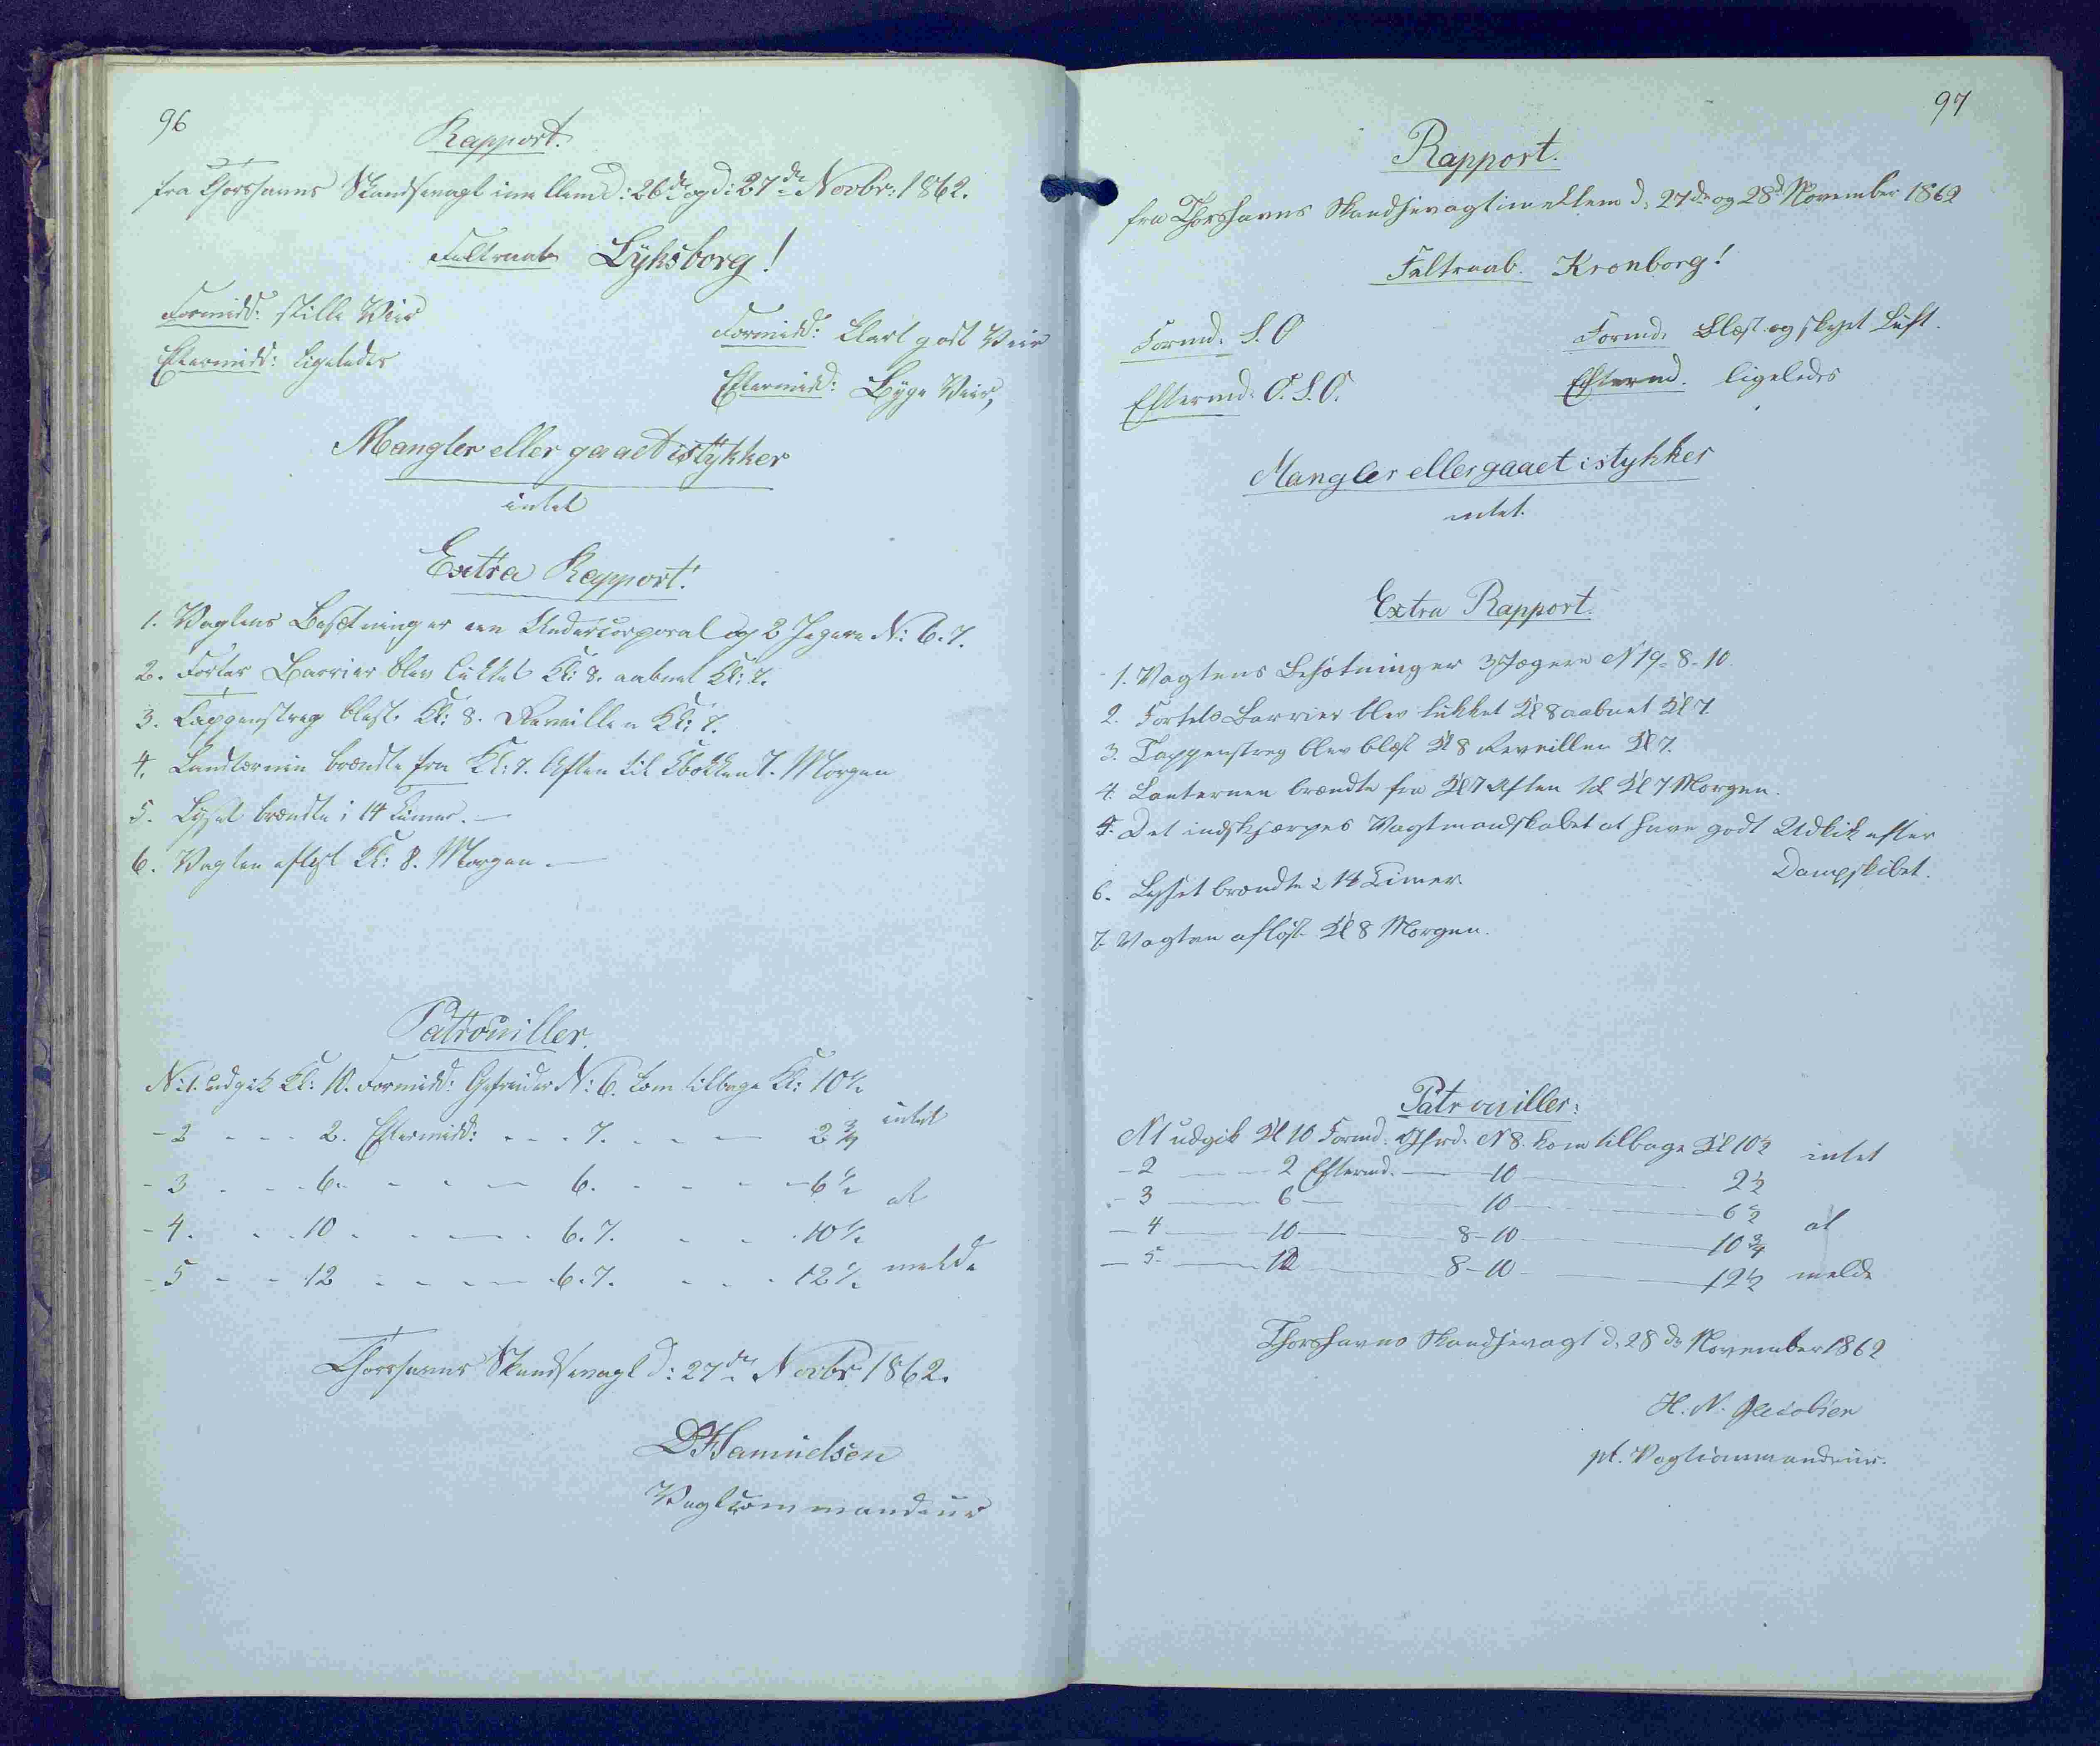 96
Rapport.
fra Thorshavns Skandsevagt imellem d: 26de og d: 27de Novbr: 1862.
Feltraab Lyksborg!
Formidd: stille Veir
Formidd: klart godt Veir
Eftermidd: ligeledes
Eftermidd: Byge Veir,
Mangler eller gaaet istykker
intet
Extra Rapport!
1. Vagtens Besætning er een Undercorporal og 2 Jegere N: 6. 7.
2. Fortes Barrier blev lukket Kl: 8. aabnet Kl: 7.
3. Tappenstreg blæst Kl: 8. Reveillen Kl: 7.
4. Landternen brændte fra Kl: 7. Aften til Klokken 7. Morgen
5. Lyset brændte i 14 Timer. —
6. Vagten afløst Kl: 8. Morgen —
Patrouiller.
N: 1. udgik Kl: 10. Formidd: Gefreider N: 6. kom tilbage Kl: 10½
- 2 - - - 2. Eftermidd: - - - 7. - - - 2¾ intet
- 3 - - - 6. - - - 6. - - - 6½ at
- 4. - - 10 - - - 6. 7. - - 10½
- 5 - - 12 - - - 6. 7. - - - 12½ melde
Thorshavns Skandsevagt d: 27de Novbr 1862.
D HSamuelsen
Vagtcommandeur
97
Rapport.
fra Thorshavns Skandsevagt imellem d. 27de og 28d November 1862
Feltraab. Kronborg!
Formd. S. O
Formd. Blæst og skyet Luft.
Eftermd. O. S. O.
Eftermd. ligeledes
Mangler eller gaaet istykker
intet.
Extra Rapport.
1. Vagtens Besætninger 3 Jægere N 19-8-10.
2. Fortets Barrier blev lukket Kl 8 aabnet Kl 7.
3. Tappenstreg blev blæst Kl 8 Reveillen Kl 7.
4. Lanternen brændte fra Kl 7 Aften til Kl 7 Morgen.
5. Det indskjærpes Vagtmandskabet at have godt Udkik efter
Dampskibet.
6. Lysset brændte i 14 Timer.
7. Vagten afløst Kl 8 Morgen.
Patrouiller:
N 1 udgik Kl 10 Formd. Gfrd. N 8. kom tilbage Kl 10½ intet
- 2 — 2 Eftermd. — 10 — 2½
- 3 — 6 — 10 — 6½
- 4 — 10 — 8-10 — 10¾ at
- 5 — 12 — 8-10 — 12½ melde
Thorshavns Skandsevagt d. 28de November 1862
H. N. Jacobsen
pt. Vagtcommandeur.